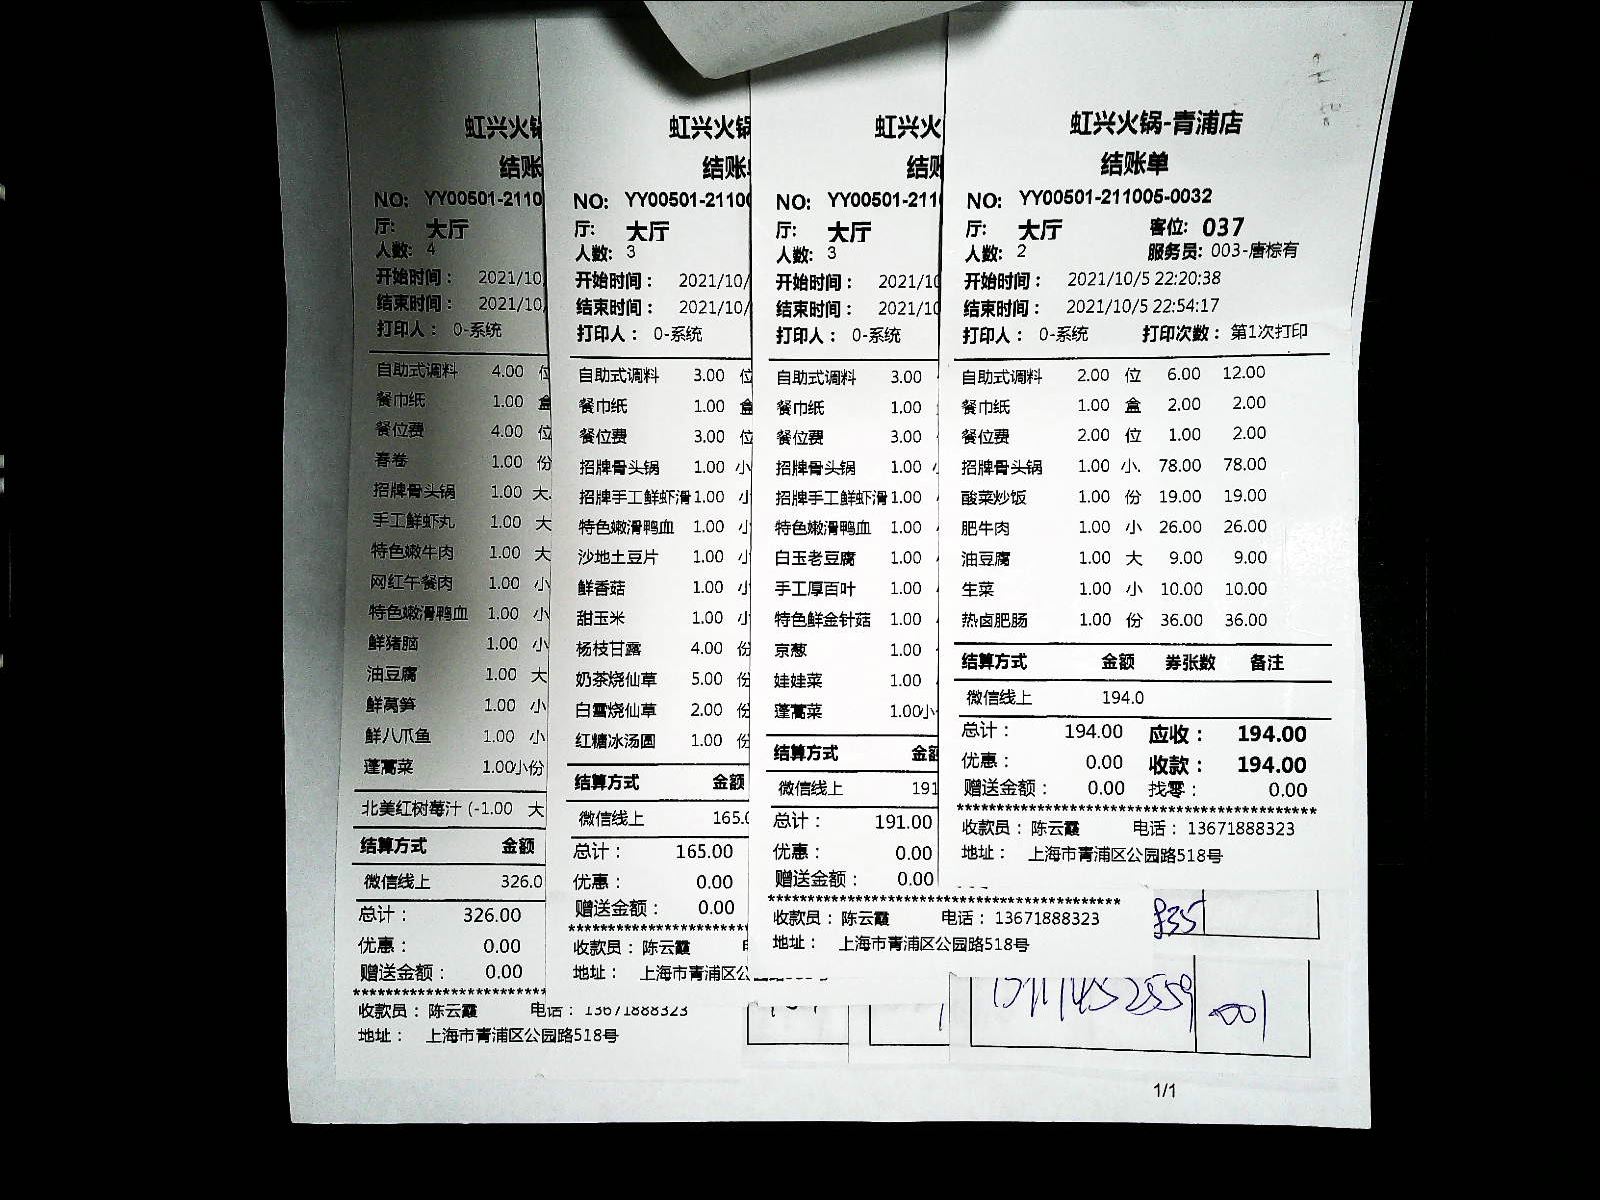 虹兴火锅
结账
NO: YY00501-2110
厅: 大厅
人数: 4
开始时间: 2021/10/
结束时间: 2021/10/
打印人: 0-系统
自助式调料 4.00 位
餐巾纸 1.00 盒
餐位费 4.00 位
春卷 1.00 份
招牌骨头锅 1.00 大
手工鲜虾丸 1.00 大
特色嫩牛肉 1.00 大
网红午餐肉 1.00 小
特色嫩滑鸭血 1.00 小
鲜猪脑 1.00 小
油豆腐 1.00 大
鲜莴笋 1.00 小
鲜八爪鱼 1.00 小
蓬蒿菜 1.00小份
北美红树莓汁 (-1.00 大
结算方式 金额
微信线上 326.0
总计: 326.00
优惠: 0.00
赠送金额: 0.00
******************************
收款员: 陈云霞 电话: 13671888323
地址: 上海市青浦区公园路518号
虹兴火锅
结账单
NO: YY00501-2110
厅: 大厅
人数: 3
开始时间: 2021/10/
结束时间: 2021/10/
打印人: 0-系统
自助式调料 3.00 位
餐巾纸 1.00 盒
餐位费 3.00 位
招牌骨头锅 1.00 小
招牌手工鲜虾滑 1.00 小
特色嫩滑鸭血 1.00 小
沙地土豆片 1.00 小
鲜香菇 1.00 小
甜玉米 1.00 小
杨枝甘露 4.00 份
奶茶烧仙草 5.00 份
白雪烧仙草 2.00 份
红糖冰汤圆 1.00 份
结算方式 金额
微信线上 165.0
总计: 165.00
优惠: 0.00
赠送金额: 0.00
******************************
收款员: 陈云霞
地址: 上海市青浦区公
虹兴火
结账
NO: YY00501-211
厅: 大厅
人数: 3
开始时间: 2021/10
结束时间: 2021/10
打印人: 0-系统
自助式调料 3.00
餐巾纸 1.00
餐位费 3.00
招牌骨头锅 1.00
招牌手工鲜虾滑 1.00
特色嫩滑鸭血 1.00
白玉老豆腐 1.00
手工厚百叶 1.00
特色鲜金针菇 1.00
京葱 1.00
娃娃菜 1.00
蓬蒿菜 1.00小
结算方式 金额
微信线上 191
总计: 191.00
优惠: 0.00
赠送金额: 0.00
******************************
收款员: 陈云霞 电话: 13671888323
地址: 上海市青浦区公园路518号
虹兴火锅-青浦店
结账单
NO: YY00501-211005-0032
厅: 大厅 客位: 037
人数: 2 服务员: 003-唐棕有
开始时间: 2021/10/5 22:20:38
结束时间: 2021/10/5 22:54:17
打印人: 0-系统 打印次数: 第1次打印
自助式调料 2.00 位 6.00 12.00
餐巾纸 1.00 盒 2.00 2.00
餐位费 2.00 位 1.00 2.00
招牌骨头锅 1.00 小. 78.00 78.00
酸菜炒饭 1.00 份 19.00 19.00
肥牛肉 1.00 小 26.00 26.00
油豆腐 1.00 大 9.00 9.00
生菜 1.00 小 10.00 10.00
热卤肥肠 1.00 份 36.00 36.00
结算方式 金额 券张数 备注
微信线上 194.0
总计: 194.00 应收: 194.00
优惠: 0.00 收款: 194.00
赠送金额: 0.00 找零: 0.00
******************************
收款员: 陈云霞 电话: 13671888323
地址: 上海市青浦区公园路518号
1/1